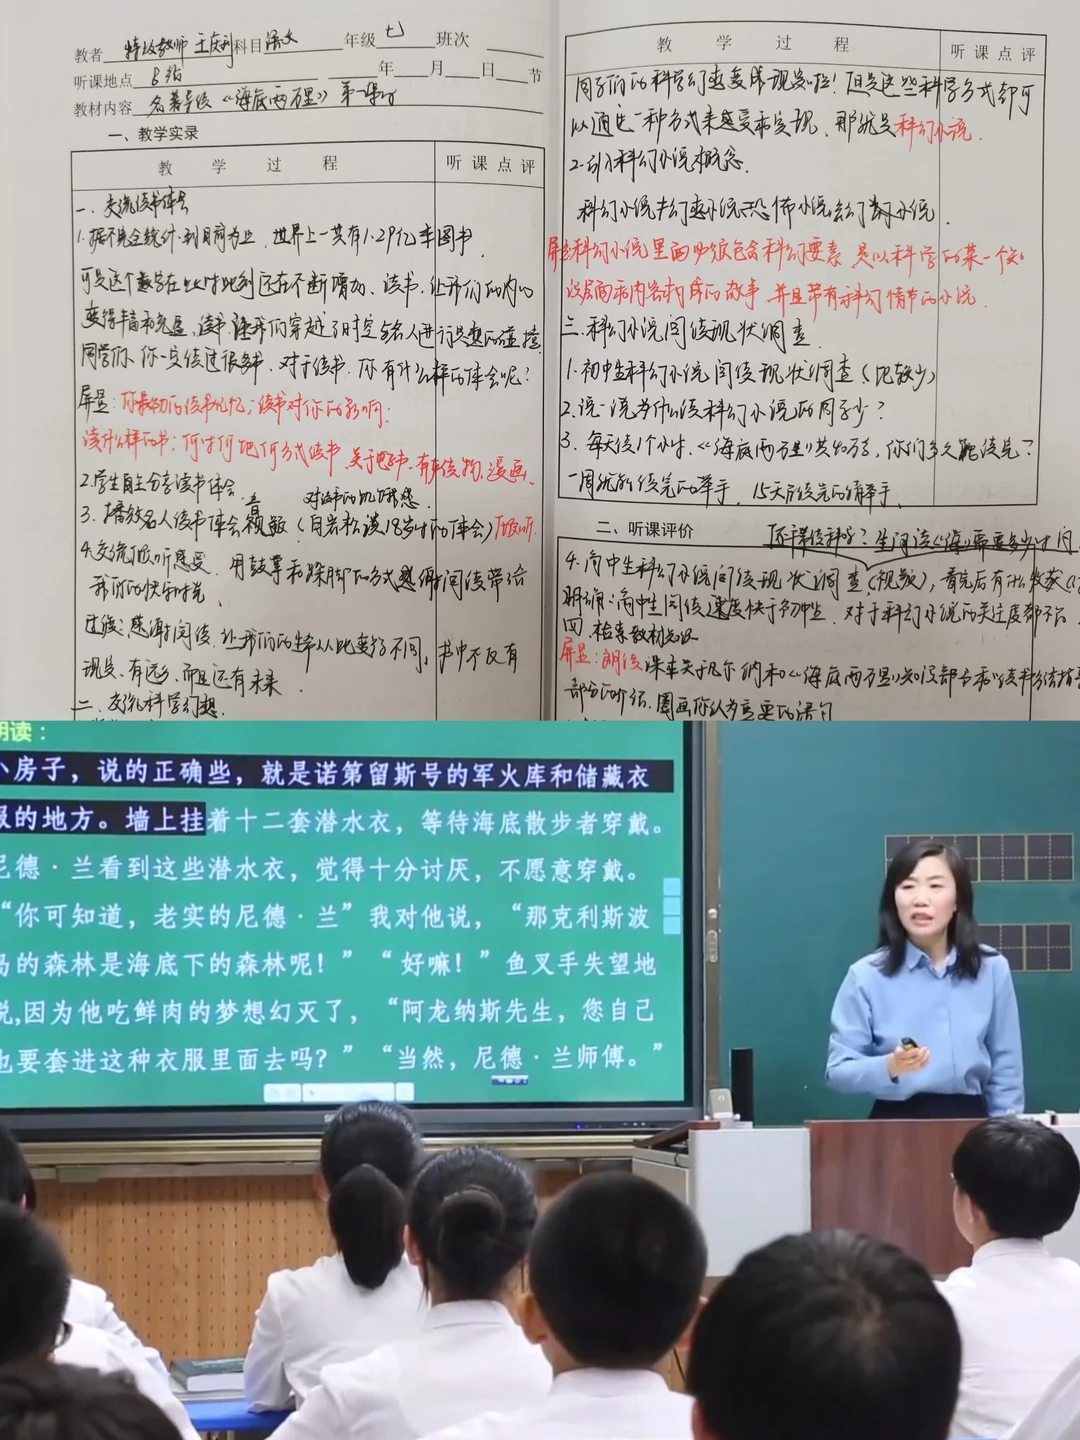 教者 特级教师 王庆利 科目 语文 年级 七 班次
听课地点 年 月 日 节
教材内容 名著导读《海底两万里》第一课时
一、教学实录
教 学 过 程 听 课 点 评
一、交流读书体会
1.据不完全统计,到目前为止,世界上一共有1.29亿本图书,
可是这个数字在此时此刻还在不断增加、读书,让我们的内心
变得丰富和充盈,读书,让我们穿越了时空与名人进行思想的碰撞,
同学们,你一定读过很多书,对于读书,你有什么样的体会呢?
屏显:你最初的读书记忆;读书对你的影响;
读什么样的书;何时何地何方式读书
2.学生自主分享读书体会.
3.播放名人读书体会视频(白岩松谈18岁时的体会)
4.交流 听感受,用鼓掌和跺脚的方式感谢阅读带给
我们的快乐时光、
过渡:感谢阅读,让我们的生命从此变得不同,书中不仅有
现实、有远乡,而且还有未来.
二、交流科学幻想.
教 学 过 程 听 课 点 评
同学们的科学幻想变成现实啦!但是这些科学方式都可
以通过一种方式来感受和实现,那就是科幻小说.
2.引入科幻小说概念.
科幻小说
屏显:科幻小说里面必须包含科幻要素,是以科学的某一个知
识层面和内容构成的故事,并且带有科幻情节的小说.
三.科幻小说阅读现状调查.
1.初中生科幻小说阅读现状调查(比较少)
2.说一说为什么读科幻小说的同学少?
3.每天读1个小时,《海底两万里》共40万字,你们多久能读完?
一周就能读完的举手,15天后读完的请举手.
二、听课评价
4.高中生科幻小说阅读现状调查(视频),看完后有什么收获
明确:高中生阅读速度快于初中生,对于科幻小说的关注度都不高
四.检索教材知识
屏显:朗读课本关于凡尔纳和《海底两万里》知识部分和读书方法指导
部分的介绍,圈画你认为重要的语句
朗读:
小房子,说的正确些,就是诺第留斯号的军火库和储藏衣
服的地方。墙上挂着十二套潜水衣,等待海底散步者穿戴。
尼德·兰看到这些潜水衣,觉得十分讨厌,不愿意穿戴。
“你可知道,老实的尼德·兰”我对他说,“那克利斯波
岛的森林是海底下的森林呢!”“好嘛!”鱼叉手失望地
说,因为他吃鲜肉的梦想幻灭了,“阿龙纳斯先生,您自己
也要套进这种衣服里面去吗?”“当然,尼德·兰师傅。”